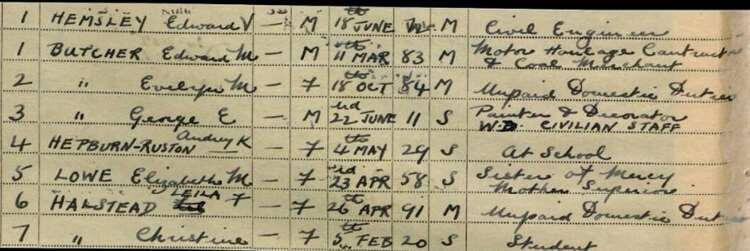 1 HEMSLEY Edward V — M 18 JUNE M Civil Engineer
1 BUTCHER Edward M — M 11th MAR 83 M Motor Haulage Contractor & Coal Merchant
2 " Evelyn M — F 18th OCT 84 M Unpaid Domestic Duties
3 " George E — M 22nd JUNE 11 S Painter & Decorator
W.D. CIVILIAN STAFF
4 HEPBURN-RUSTON Audrey K — F 4th MAY 29 S At School
5 LOWE Elizabeth M — F 23rd APR 58 S Sister of Mercy
Mother Superior
6 HALSTEAD LEILA F — F 26th APR 91 M Unpaid Domestic Dut
7 " Christine — F 5th FEB 20 S Student